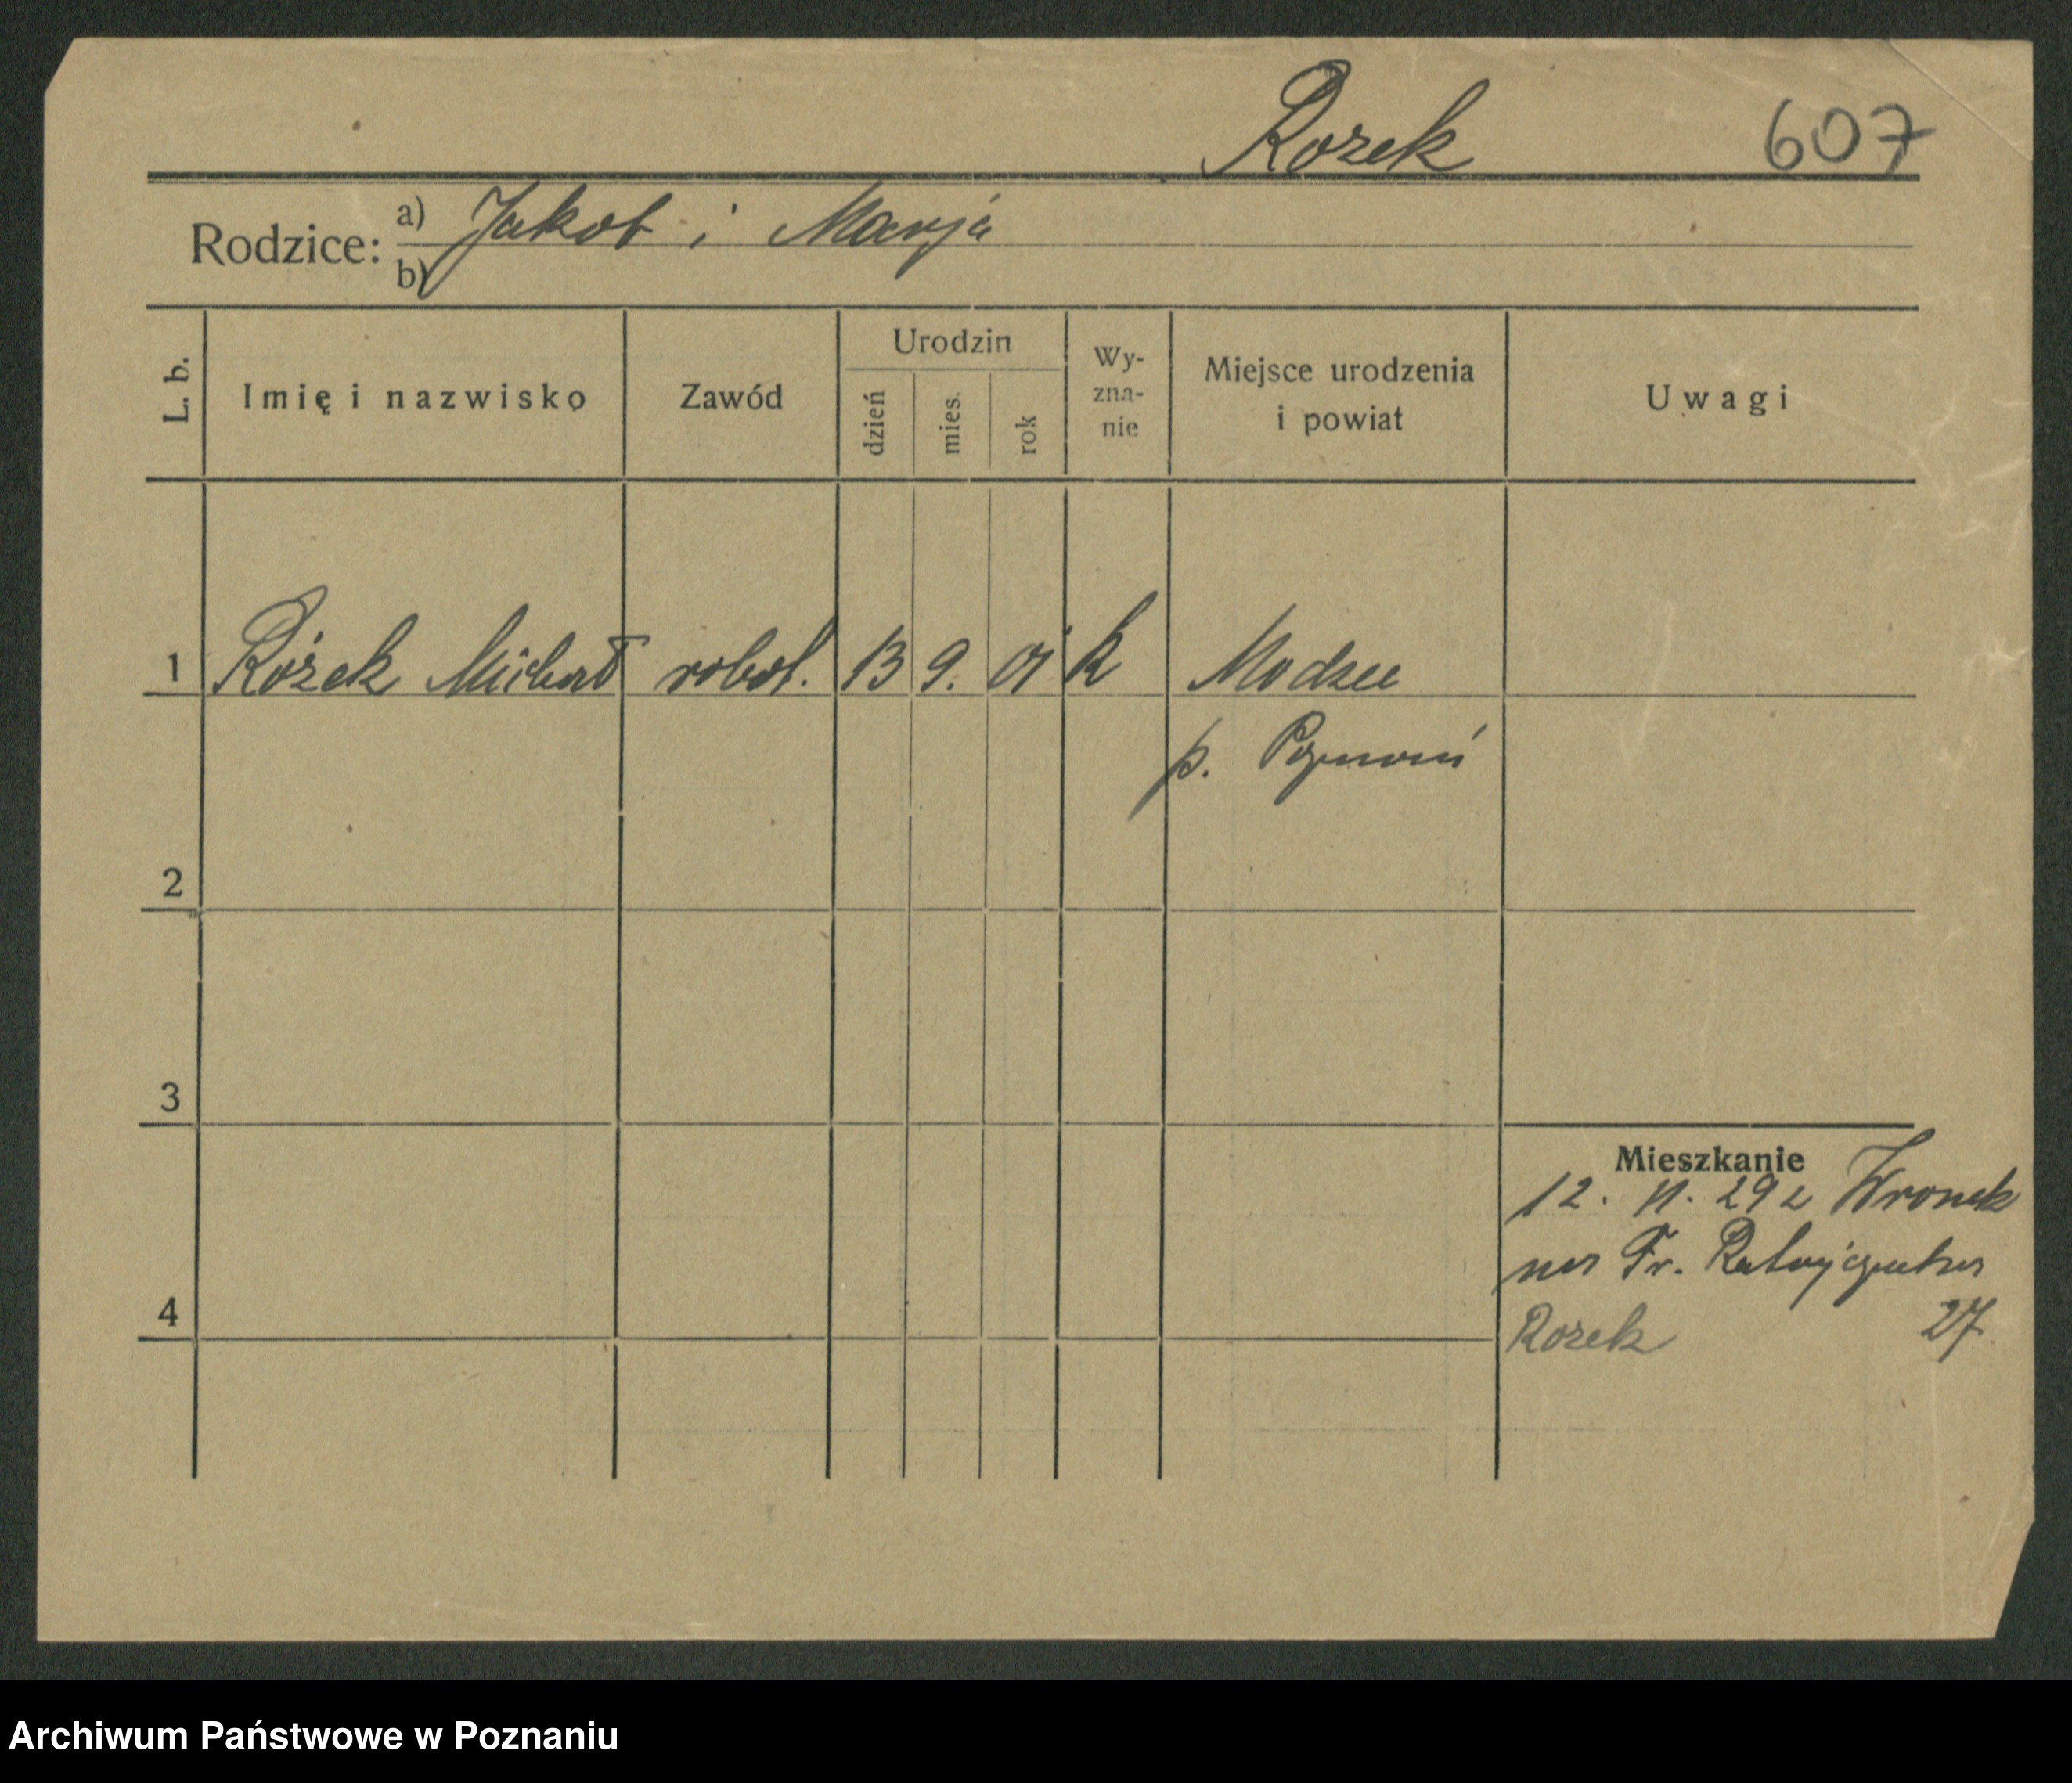 Rozek 607
Rodzice: a) Jakob i Marja
b)
L. b. Imię i nazwisko Zawód Urodzin dzień mies. rok Wy-zna-nie Miejsce urodzenia i powiat Uwagi
1 Rożek Michał robot. 13 9. 01 k Modze
p. Poznań
2
3
Mieszkanie
12. 11. 29 z Wronek
na Fr. Ratajczaka
4 Rozek 27
Archiwum Państwowe w Poznaniu